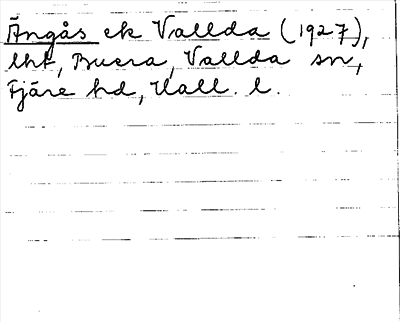 Ängås ek Vallda (1927),
lht, Buera, Vallda sn,
Fjäre hd, Hall. l.